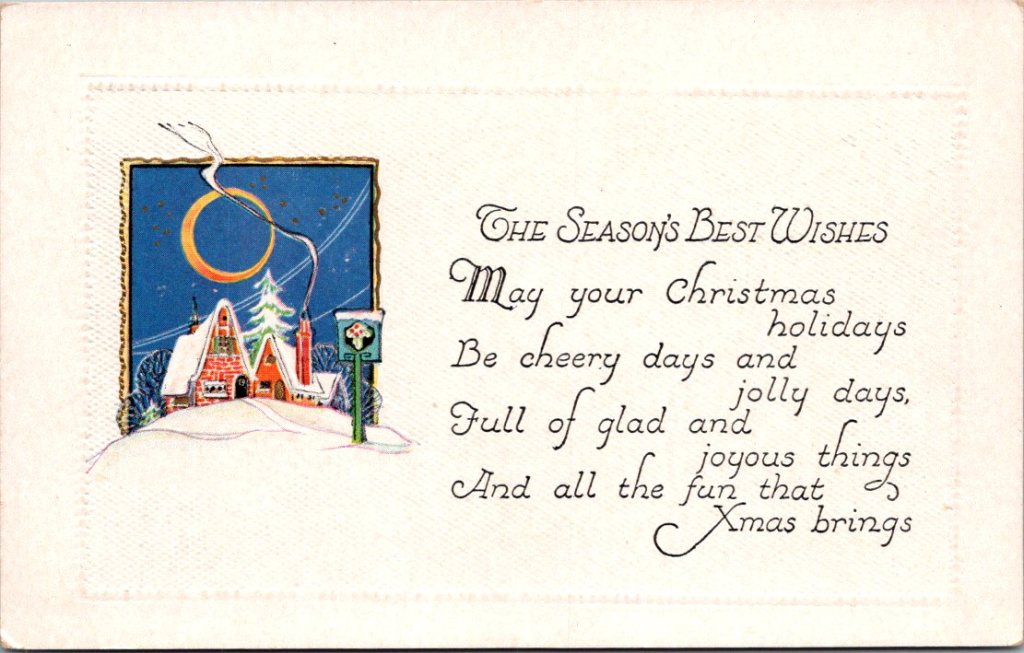 The Season's Best Wishes
May your Christmas
holidays
Be cheery days and
jolly days,
Full of glad and
joyous things
And all the fun that
Xmas brings